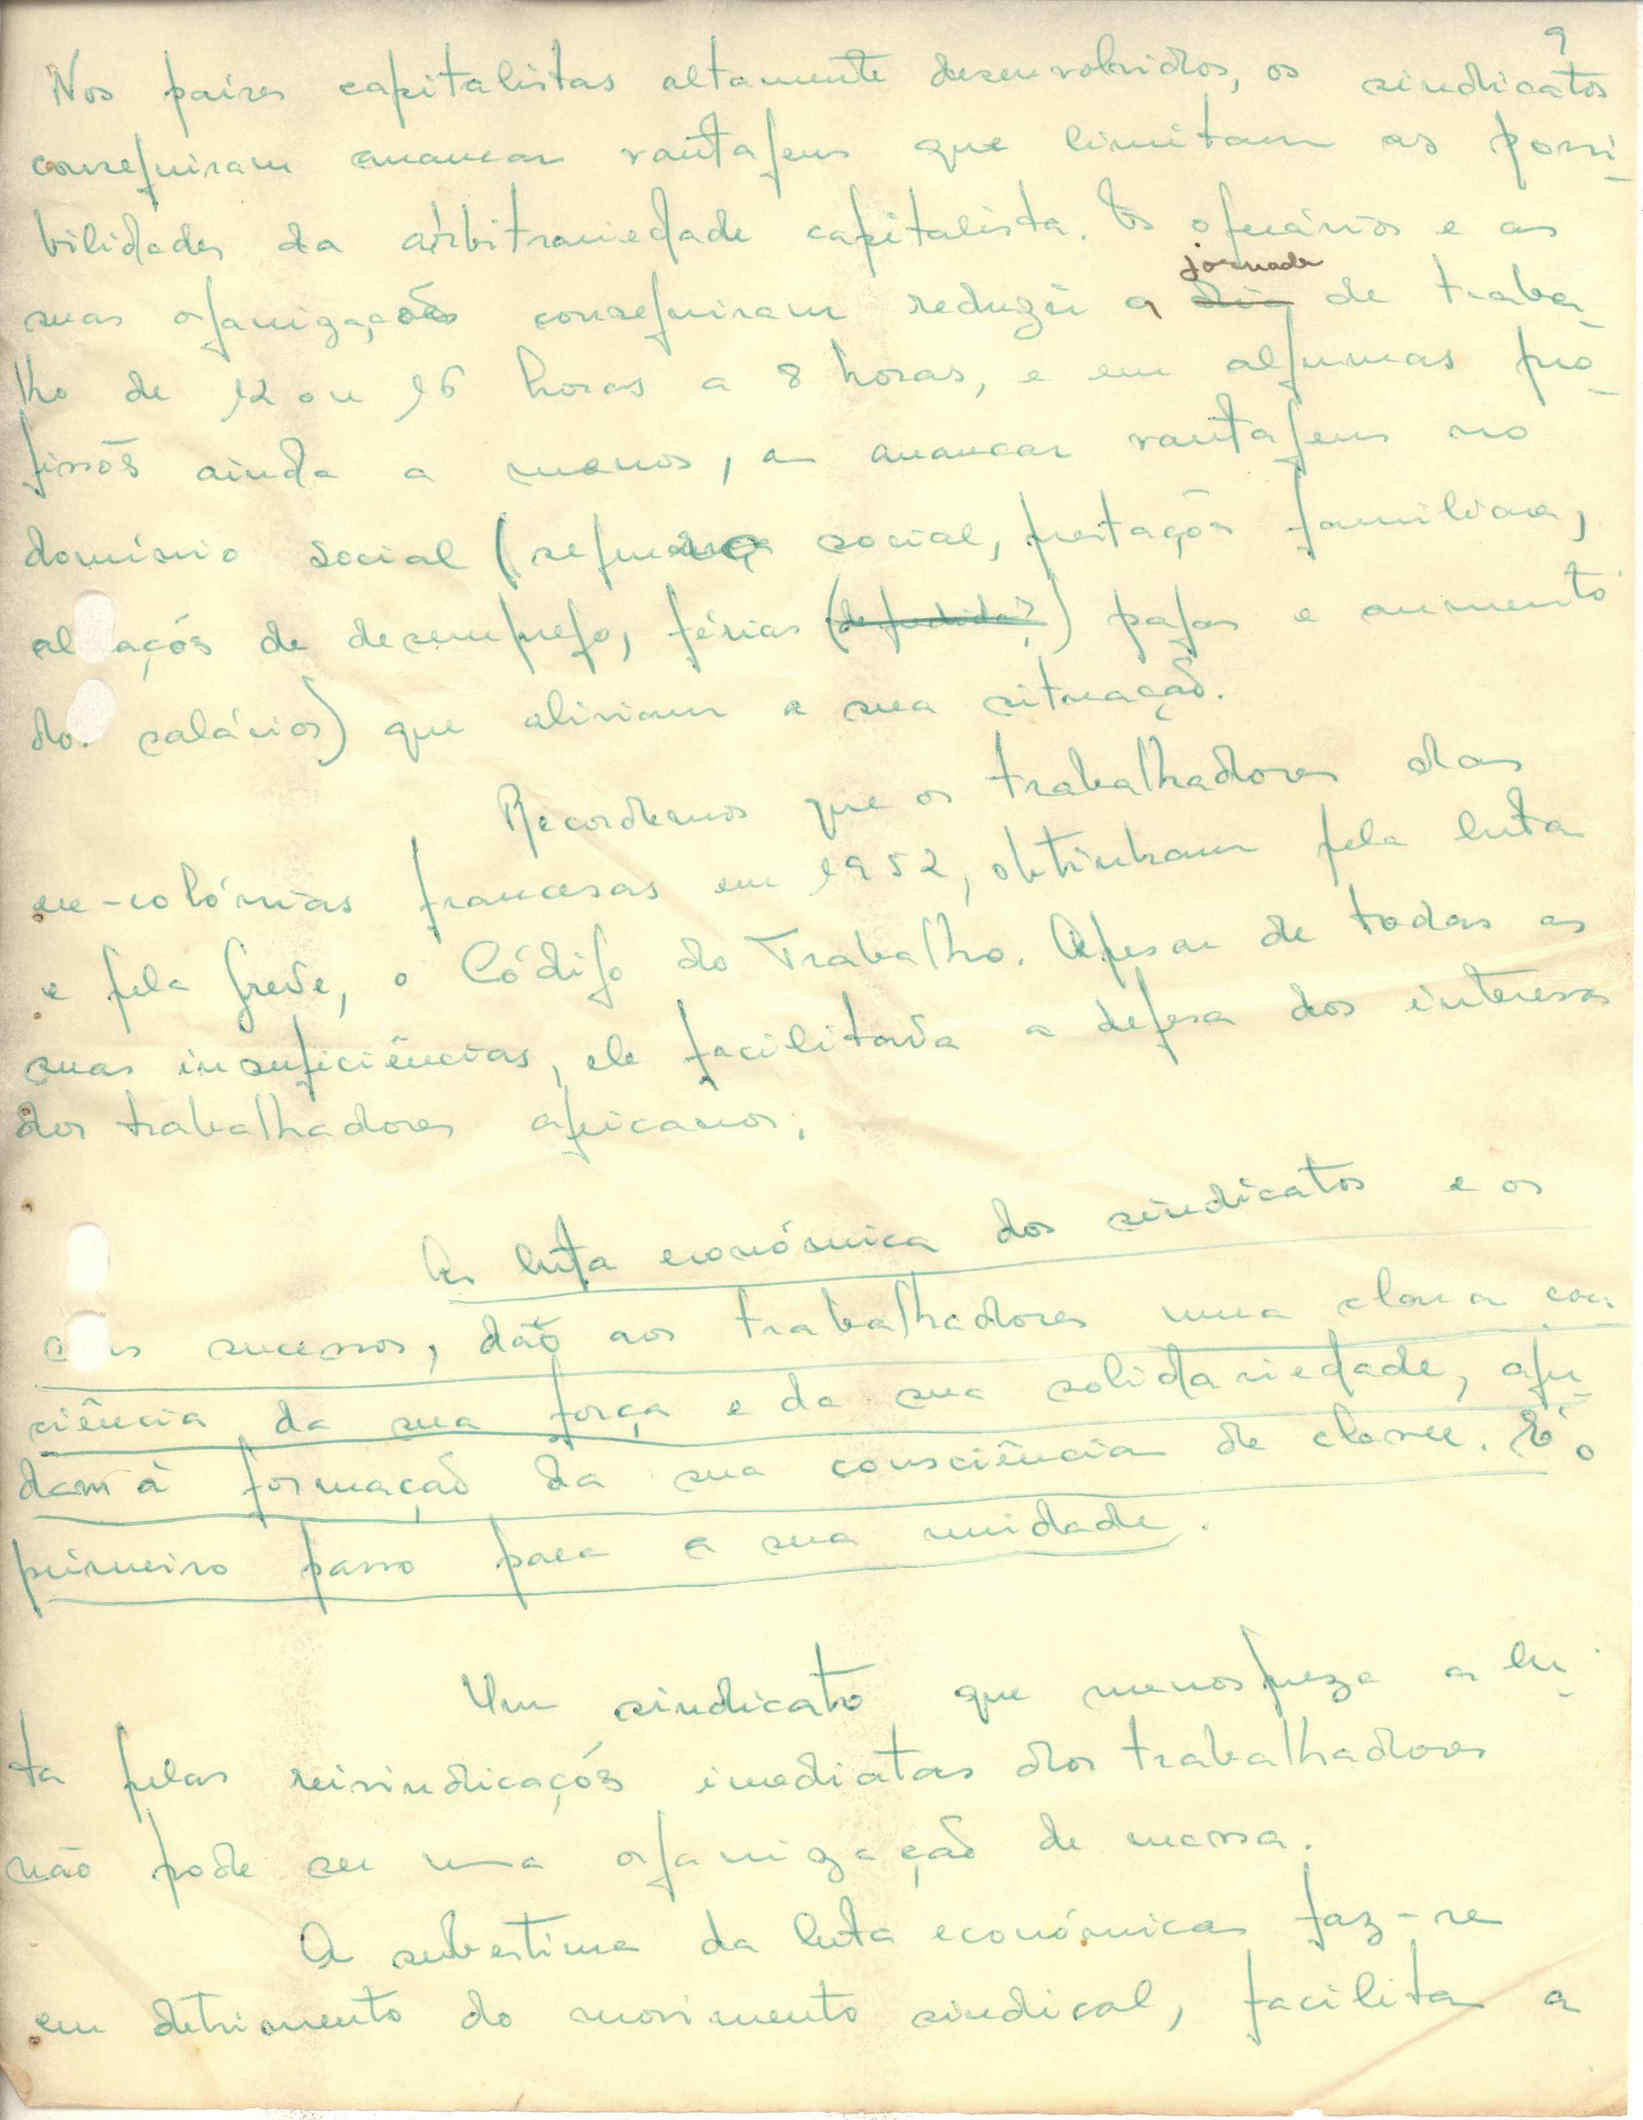 9
Nos países capitalistas altamente desenvolvidos, os sindicatos
conseguiram arrancar vantagens que limitam as possi-
bilidades da arbitrariedade capitalista. Os operários e as
jornada
suas organizações conseguiram reduzir a dia de traba-
lho de 12 ou 16 horas a 8 horas, e em algumas pro-
fissões ainda a menos, a arrancar vantagens no
domínio social (segurança social, prestações familiares,
al ações de desemprego, férias ( ) pagas e aumento
do salários) que aliviam a sua situação.
Recordemos que os trabalhadores das
ex-colónias francesas em 1952, obtinham pela luta
e pela greve, o Código do Trabalho. Apesar de todas as
suas insuficiências, ele facilitava a defesa dos interesses
dos trabalhadores africanos.
As luta económica dos sindicatos e os
s sucessos, dão aos trabalhadores uma clara cons
ciência da sua força e da sua solidariedade, aju-
dam à formação da sua consciência de classe. É o
primeiro passo para a sua unidade.
Um sindicato que menospreza a lu-
ta pelas reivindicações imediatas dos trabalhadores
não pode ser uma organização de massa.
A subestima da luta económica faz-se
em detrimento do movimento sindical, facilita a